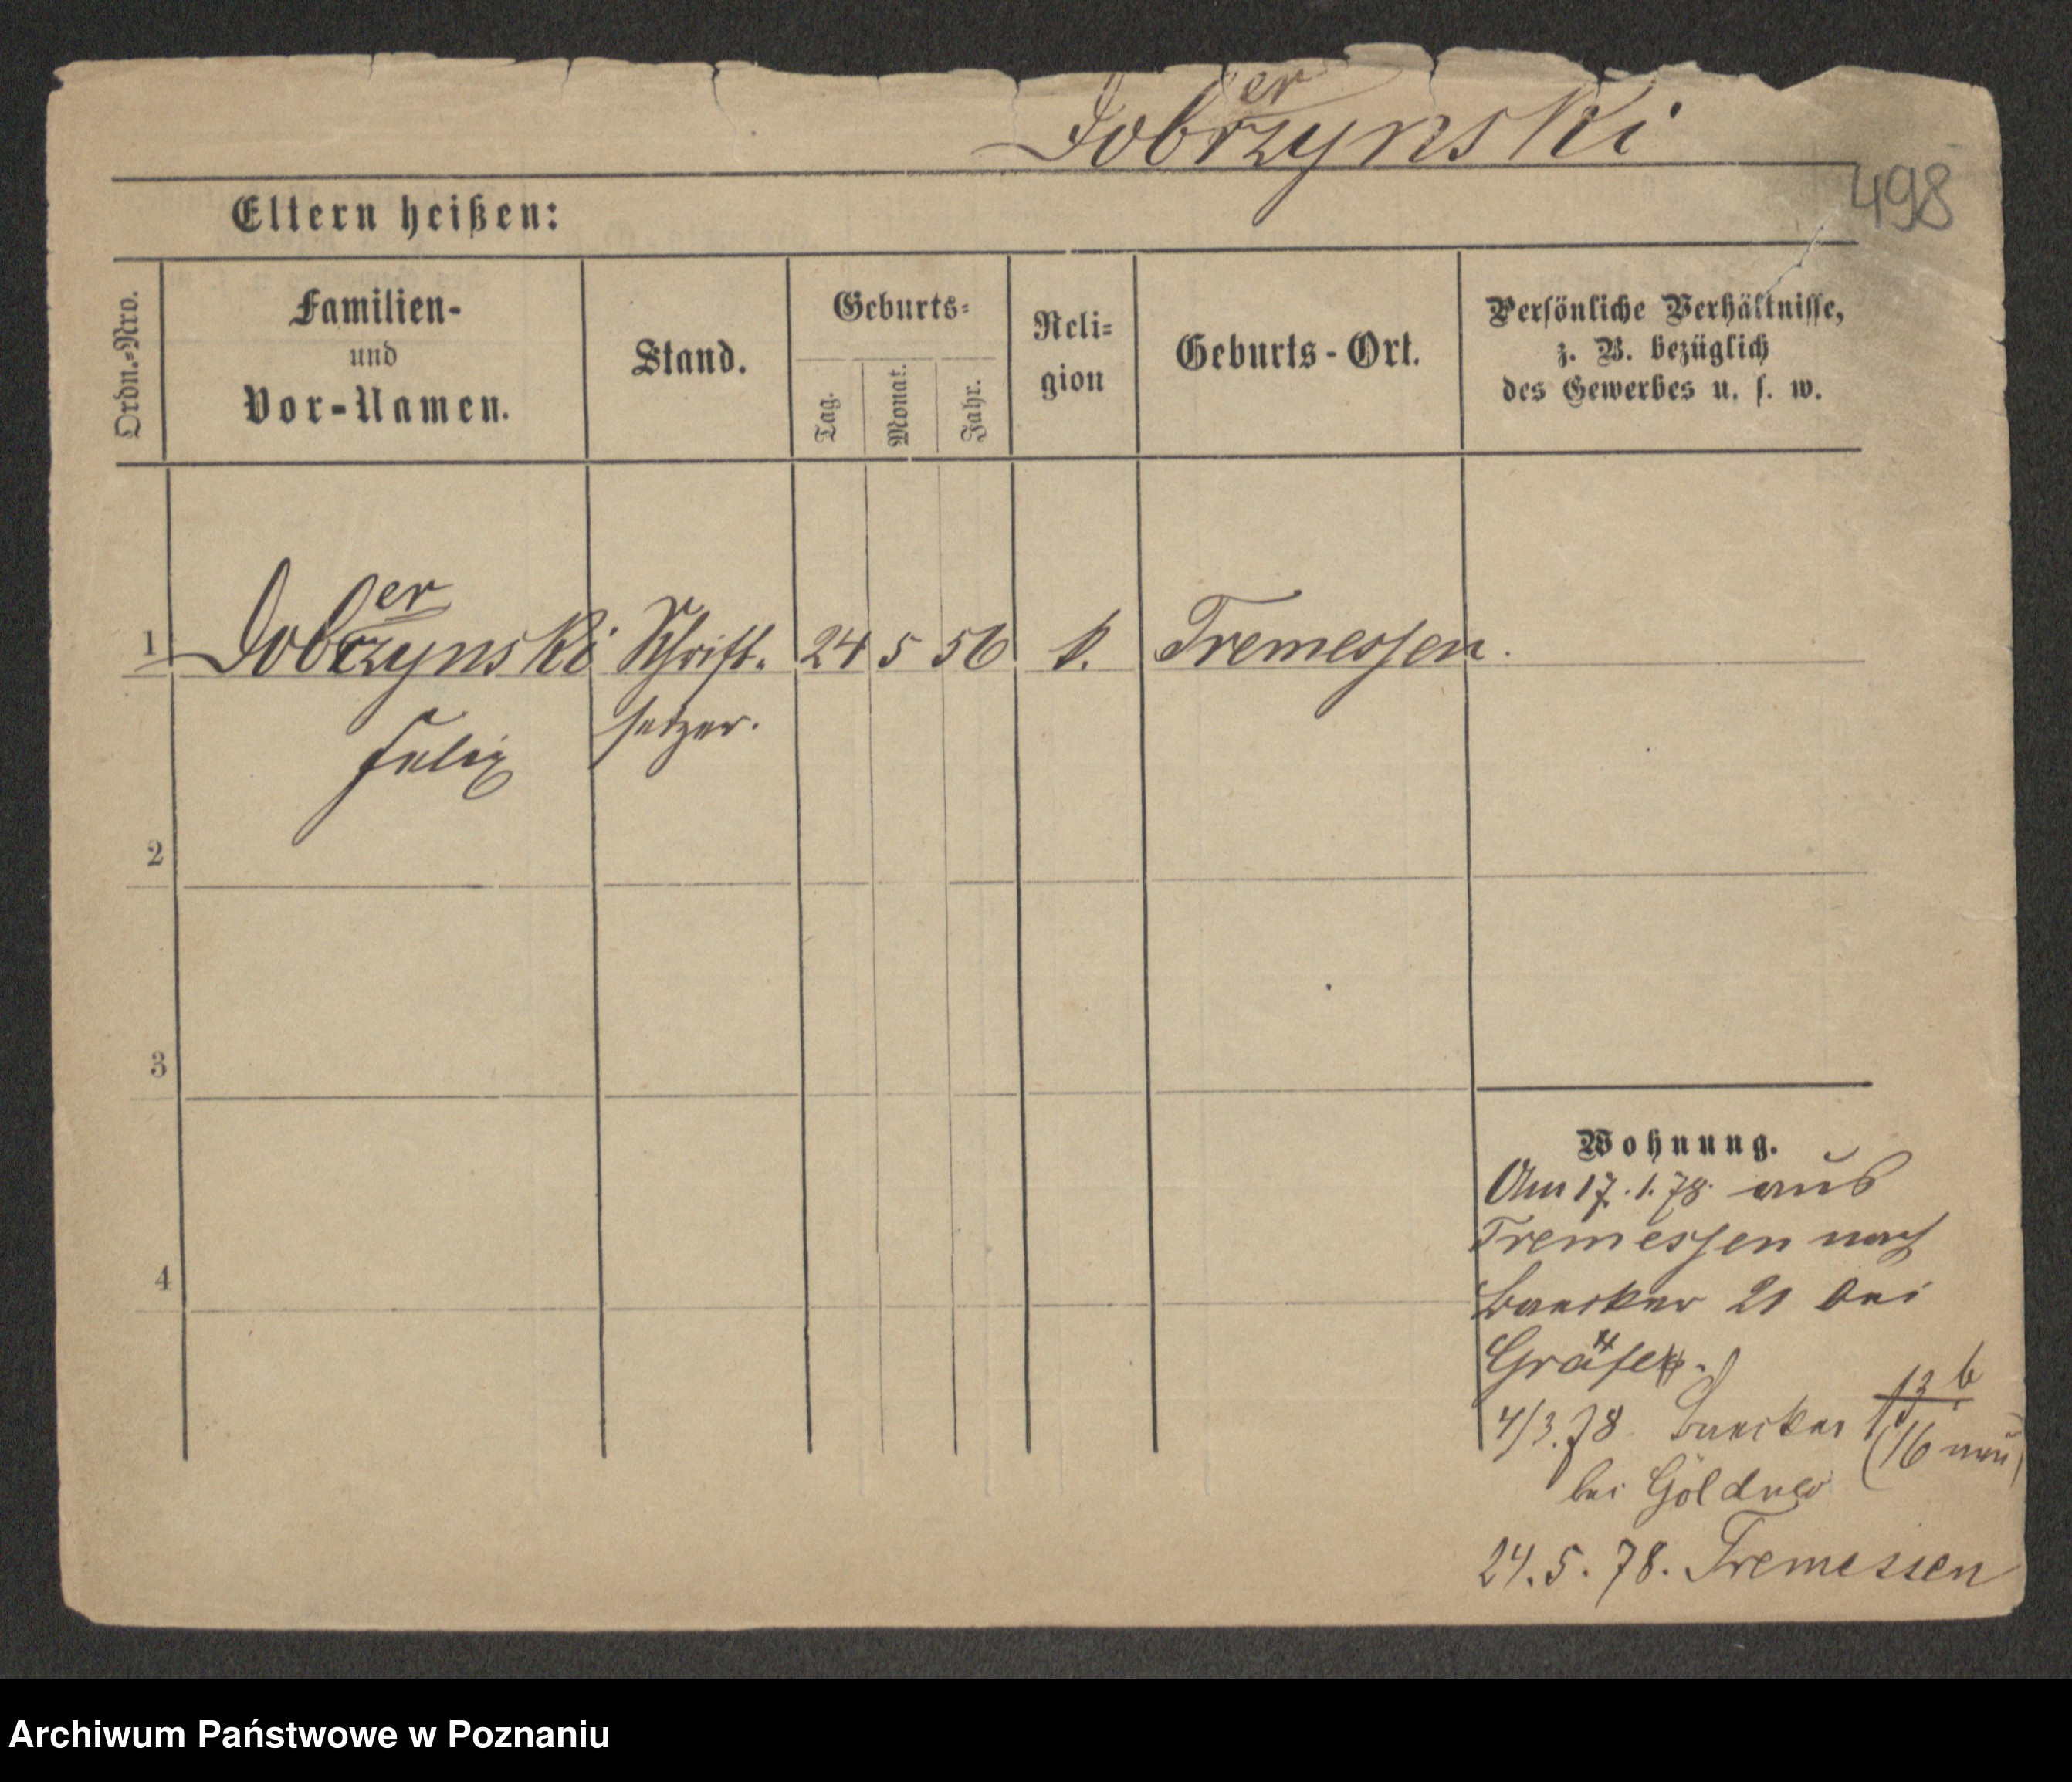 er
Dobrzynski
498
Eltern heißen:
Ordn.-Nro.
Familien-
und
Vor-Namen.
Stand.
Geburts-
Tag.
Monat.
Jahr.
Reli-
gion
Geburts-Ort.
Persönliche Verhältnisse,
z. B. bezüglich
des Gewerbes u. s. w.
er
1 Dobrzynski Schrift- 24 5 56 k. Tremessen.
Felix setzer.
2
3
4
Wohnung.
Am 17.1.78 aus
Tremessen nach
21 bei
4/3.78 13 b
(16 neu)
bei Göldner
24.5.78. Tremessen
Archiwum Państwowe w Poznaniu